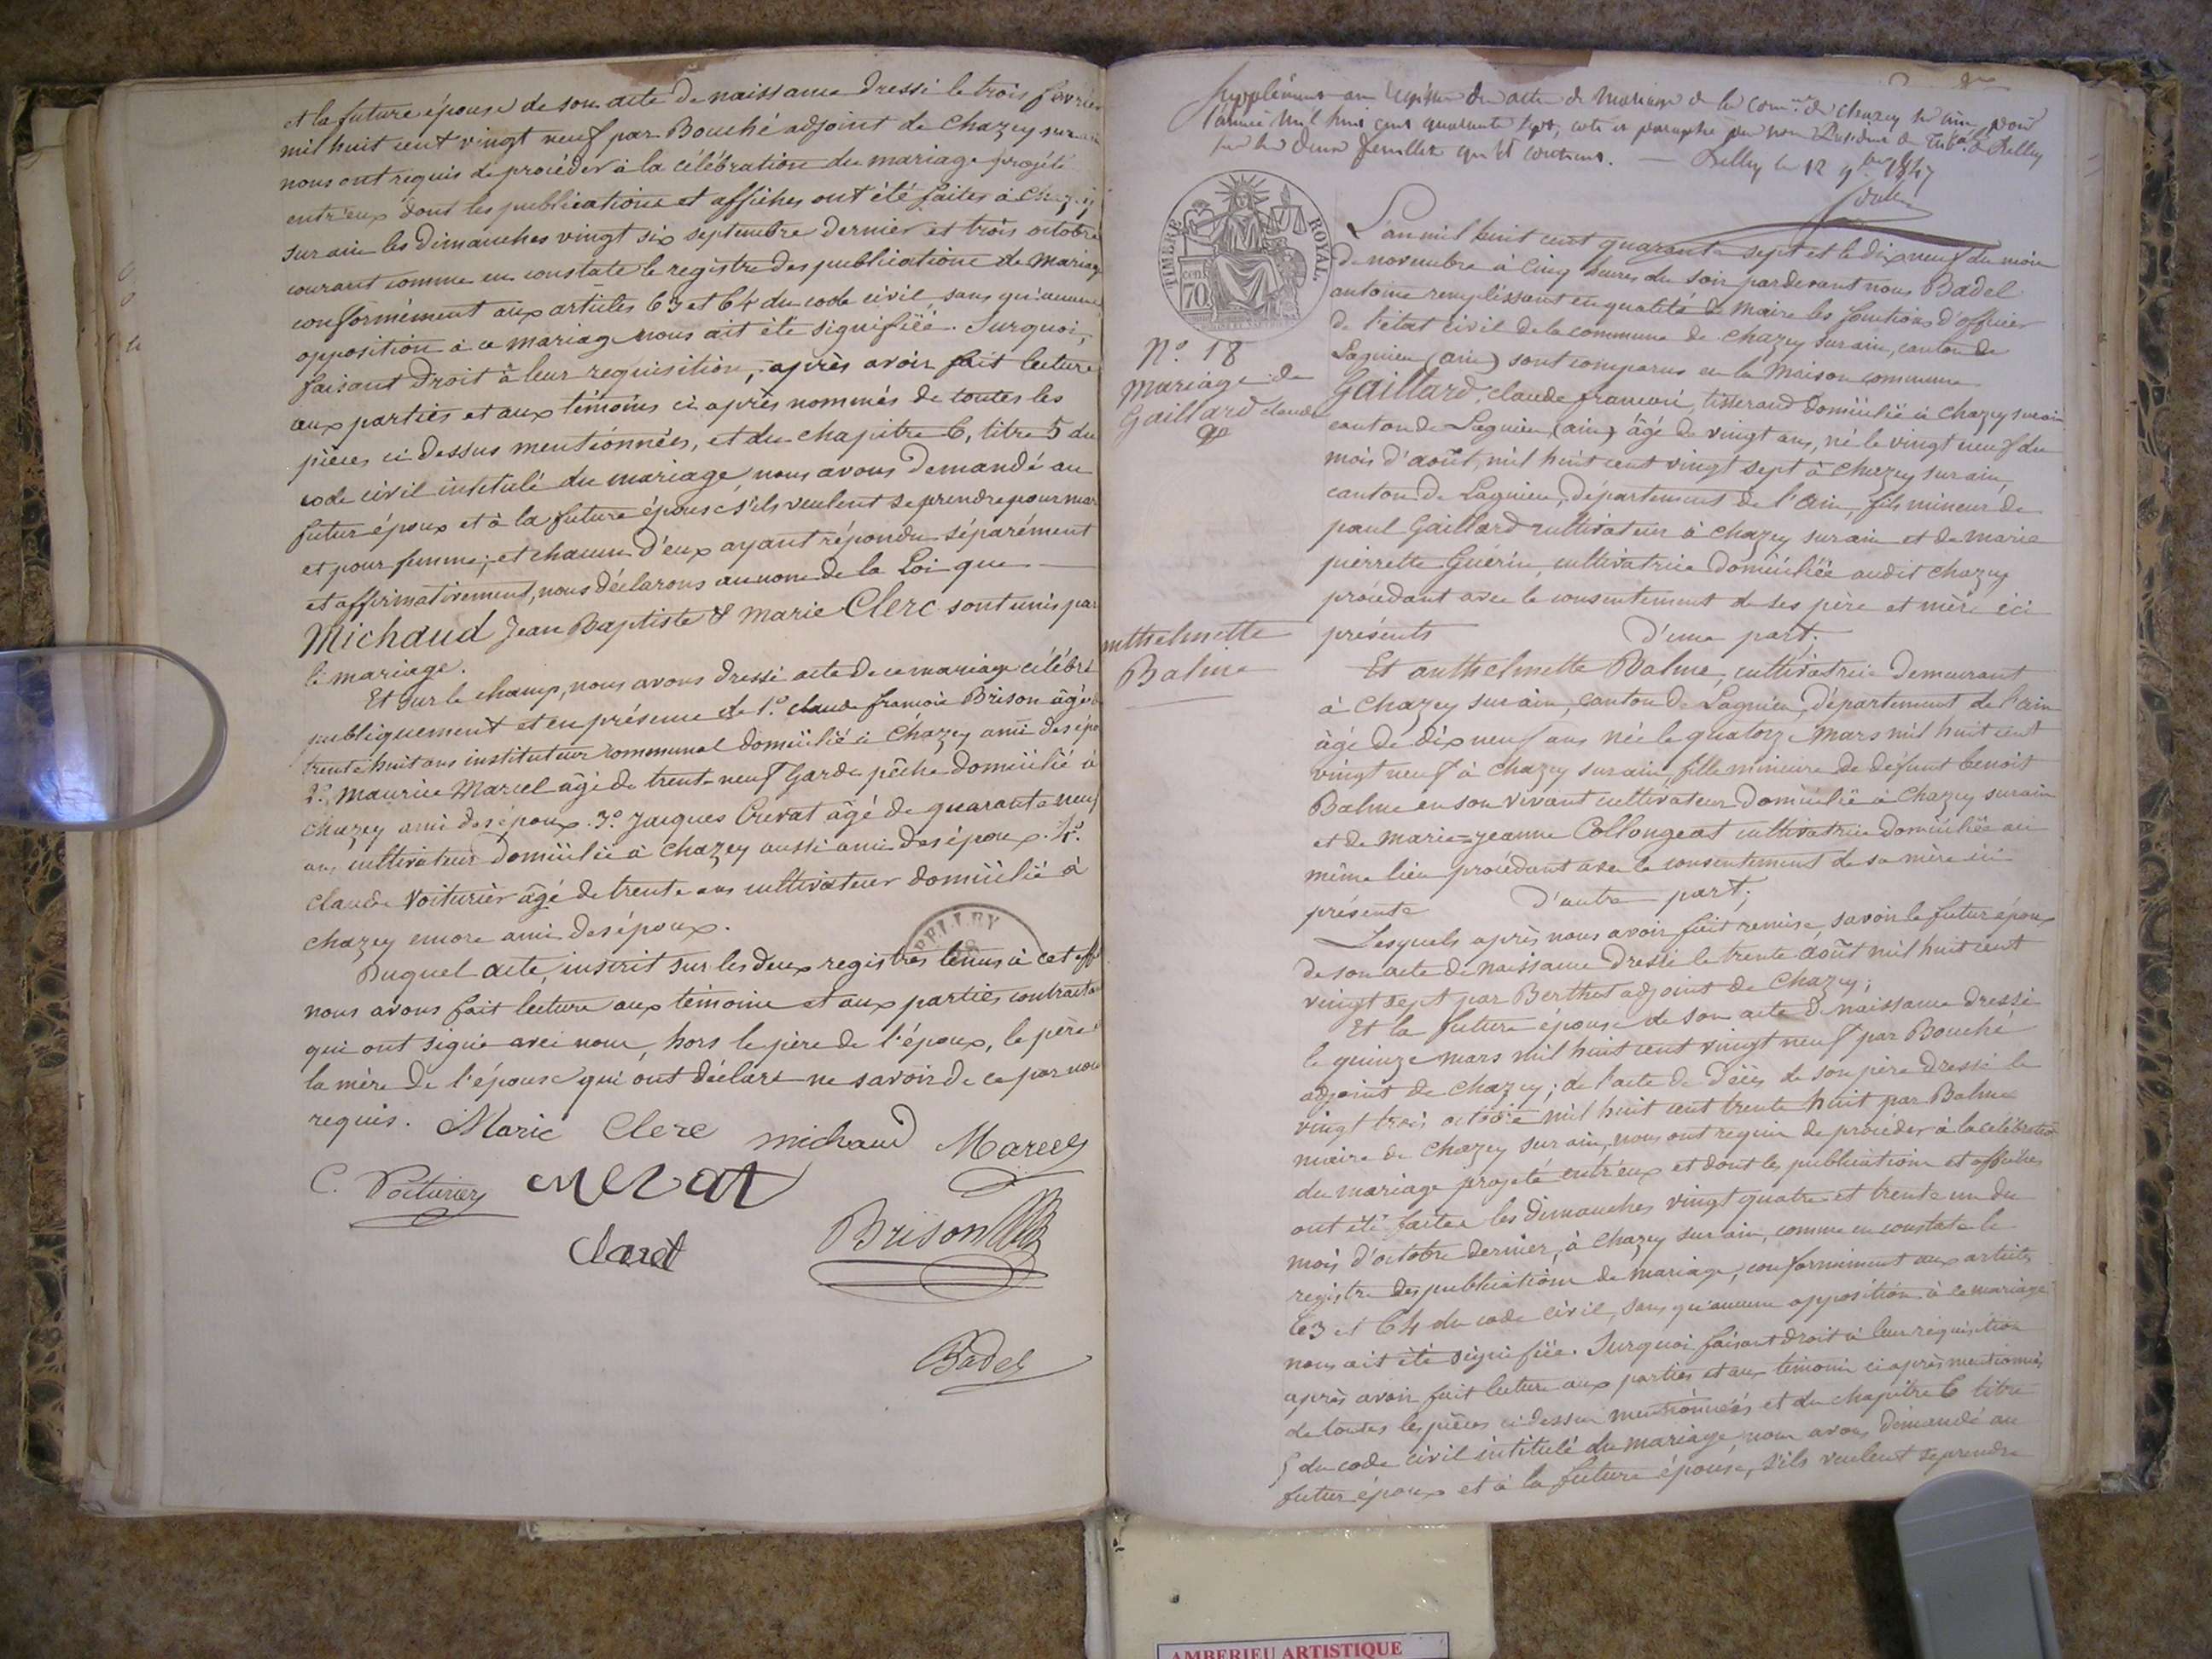 et la future épouse de son acte de naissance dressé le trois février
mil huit cent vingt neuf par Bouché adjoint de Chazey sur ain
nous ont requis de procéder à la célébration du mariage projeté
entr'eux dont les publications et affiches ont été faites à Chazey
sur ain les dimanches vingt six septembre dernier et trois octobre
courant comme en constate le registre des publications de mariage
conformément aux articles 63 et 64 du code civil, sans qu'aucune
opposition à ce mariage nous ait été signifiée. Surquoi,
faisant droit à leur requisition, après avoir fait lecture
aux parties et aux témoins ci après nommés de toutes les
pièces ci dessus mentionnées, et du chapitre 6, titre 5 du
code civil intitulé du mariage, nous avons demandé au
futur époux et à la future épouse s'ils veulent se prendre pour mari
et pour femme; et chacun d'eux ayant répondu séparément
et affirmativement, nous déclarons au nom de la Loi que
Michaud Jean Baptiste & Marie Clerc sont unis par
le mariage.
Et sur le champ, nous avons dressé acte de ce mariage célébré
publiquement et en présence de 1.° claude françois Brison âgé de
trente huit ans instituteur communal domicilié à Chazey ami des épo
2.° Maurice Marcel âgé de trente neuf Garde pêche domicilié à
Chazey ami des époux. 3.° Jacques Crevat âgé de quarante neuf
ans cultivateur domicilié à Chazey aussi ami des époux. 4.°
Claude Voiturier âgé de trente ans cultivateur domicilié à
Chazey encore ami des époux.
BELLEY
Duquel acte, inscrit sur les deux registres tenus à cet eff
nous avons fait lecture aux témoins et aux parties contracta
qui ont signé avec nous, hors le père de l'époux, le père
la mère de l'épouse qui ont déclaré ne savoir de ce par nous
requis. Marie Clerc michaud Marcel
C. Voiturier crevat
claret Brison
Badel
Supplément au registre des actes de mariage de la Com.ne de Chazey sur ain, pour
l'année mil huit cent quarante sept, coté et paraphé par nous Président du Trib.al de Belley
sur les deux feuillets qu'il contient. — Belley le 12 9.bre 1847
TIMBRE ROYAL
70
L'an mil huit cent quarante sept et le dix neuf du mois
de novembre à cinq heures du soir pardevant nous Badel
antoine remplissant en qualité de Maire les fonctions d'officier
de l'état civil de la commune de Chazey sur ain, canton de
Lagnieu (ain) sont comparus en la Maison commune
N.° 18
Mariage de
Gaillard claude
&
Gaillard, claude francois, tisserand domicilié à Chazey sur ain
canton de Lagnieu, (ain) âgé de vingt ans, né le vingt neuf du
mois d'août, mil huit cent vingt sept à Chazey sur ain,
canton de Lagnieu, département de l'ain, fils mineur de
paul Gaillard cultivateur à Chazey sur ain et de marie
pierrette Guérin, cultivatrice domiciliée audit Chazey
procédant avec le consentement de ses père et mère ici
présents d'une part.
anthelmette
Balme
Et anthelmette Balme, cultivatrice demeurant
à Chazey sur ain, canton de Lagnieu, département de l'ain
âgé de dix neuf ans née le quatorze Mars mil huit cent
vingt neuf à Chazey sur ain, fille mineure de défunt benoit
Balme en son vivant cultivateur domicilié à Chazey sur ain
et de marie=jeanne Collongeat cultivatrice domiciliée au
même lieu procédant avec le consentement de sa mère ici
présente d'autre part;
Lesquels après nous avoir fait remise, savoir le futur époux
de son acte de naissance dressé le trente août mil huit cent
vingt sept par Berthet adjoint de Chazey;
Et la future épouse de son acte de naissance dressé
le quinze mars mil huit cent vingt neuf par Bouché
adjoint de Chazey; de l'acte de décès de son père dressé le
vingt trois octobre mil huit cent trente huit par Balme
maire de Chazey sur ain, nous ont requis de procéder à la célébration
du mariage projeté entr'eux et dont les publications et affiches
ont été faites les dimanches vingt quatre et trente un du
mois d'octobre dernier, à Chazey sur ain, comme en constate le
registre des publications de mariage, conformément aux articles
63 et 64 du code civil, sans qu'aucune opposition à ce mariage
nous ait été signifiée. Surquoi faisant droit à leur réquisition
après avoir fait lecture aux parties et aux témoins ci après mentionnés
de toutes les pièces ci dessus mentionnées et du chapitre 6 titre
5 du code civil intitulé du mariage, nous avons demandé au
futur époux et à la future épouse, s'ils veulent se prendre
AMBERIEU ARTISTIQUE